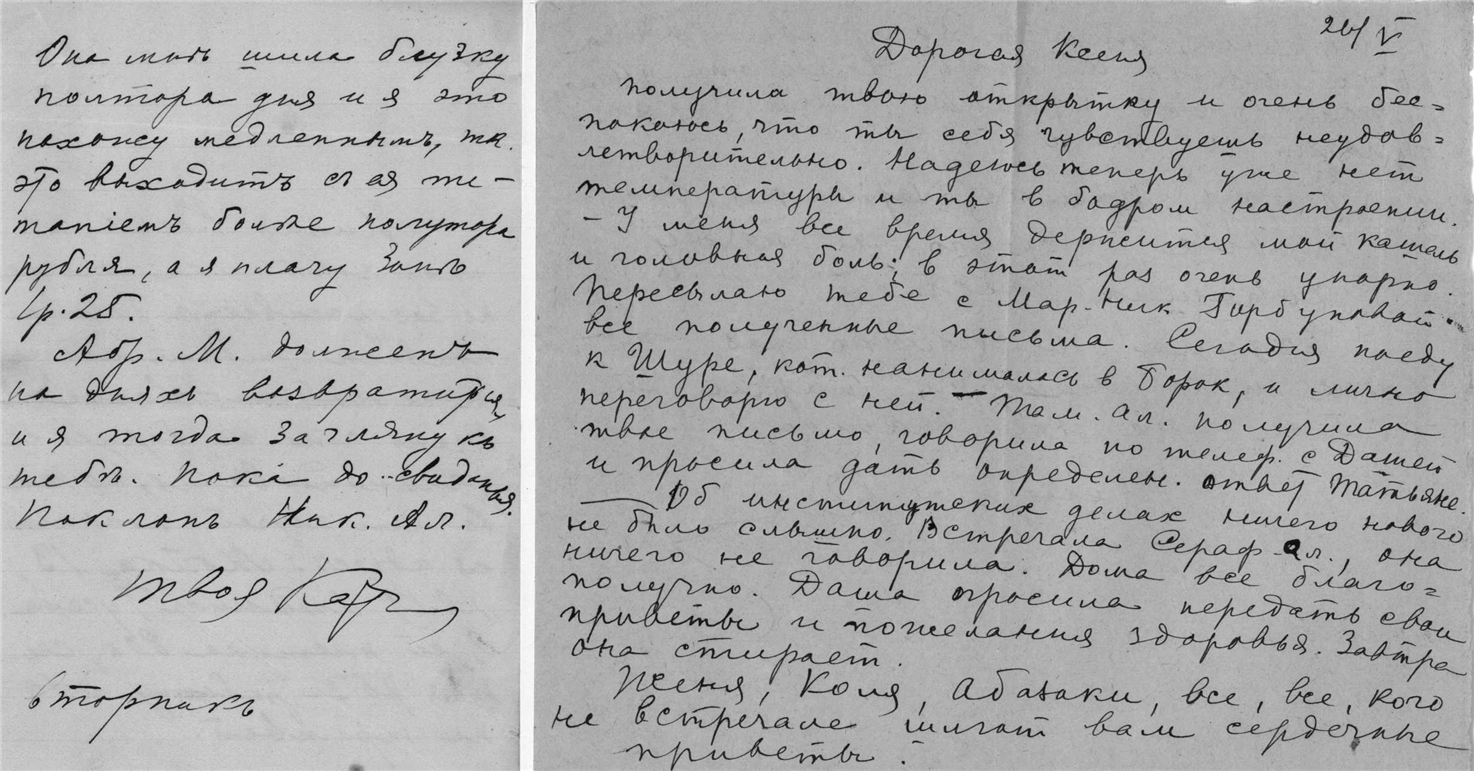 Она мнѣ шила блузку
полтора дня и я это
нахожу медленнымъ, тк.
это выходитъ съ ея пи-
таніемъ болѣе полутора
рубля, а я плачу Зонѣ
1р. 25.
Абр. М. долженъ
на дняхъ возвратиться
и я тогда загляну къ
тебѣ. Пока до свиданья.
Поклонъ Ник. Ал.
Твоя
вторникъ
26/V
Дорогая Ксеня
получила твою открытку и очень бес=
покоюсь, что ты себя чувствуешь неудов=
летворительно. Надеюсь теперь уже нет
температуры и ты в бодром настроении.
– У меня все время держится мой кашель
и головная боль; в этот раз очень упорно.
Пересылаю тебе с Мар. Ник. Горбуновой
все полученные письма. Сегодня поеду
к Шуре, кот. нанималась в Борок, и лично
переговорю с ней. – Там. Ал. получила
твое письмо, говорила по телеф. с Дашей
и просила дать определен. ответ Татьяне.
— Об институтских делах ничего нового
не было слышно. Встречала Сераф. Ал., она
ничего не говорила. Дома все благо=
получно. Даша просила передать свои
приветы и пожелания здоровья. Завтра
она стирает.
Женя, Коля, все, все, кого
не встречаю шлют вам сердечные
приветы.